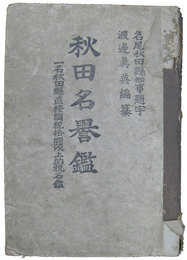 各尾秋田縣知事題字
渡邊眞英編纂
秋田名譽鑑
一名秋田縣直接國税拾圓以上納税名鑑